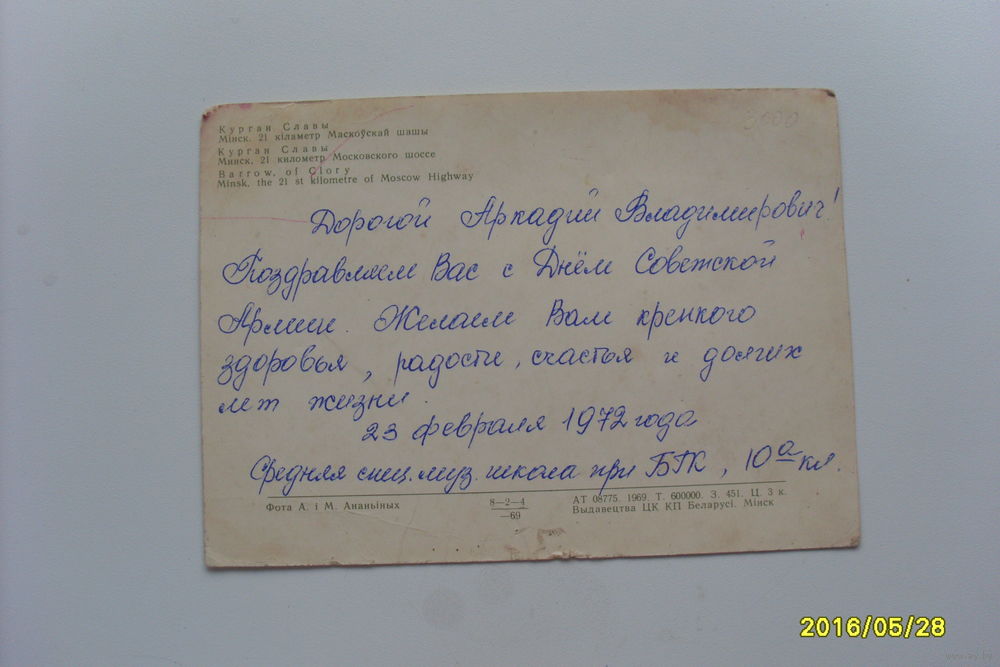 Курган Славы
Мінск. 21 кіламетр Маскоўскай шашы
Курган Славы
Минск. 21 километр Московского шоссе
Barrow, of Glory
Minsk, the 21 st kilometre of Moscow Highway
3000
Дорогой Аркадий Владимирович!
Поздравляем Вас с Днём Советской
Армии. Желаем Вам крепкого
здоровья, радости, счастья и долгих
лет жизни.
23 февраля 1972 года
Средняя спец. муз. школа при БГК, 10 а кл.
Фота А. і М. Ананьіных
8—2—4
—69
АТ 08775. 1969. Т. 600000. З. 451. Ц. 3 к.
Выдавецтва ЦК КП Беларусі. Мінск
2016/05/28
www.ay.by